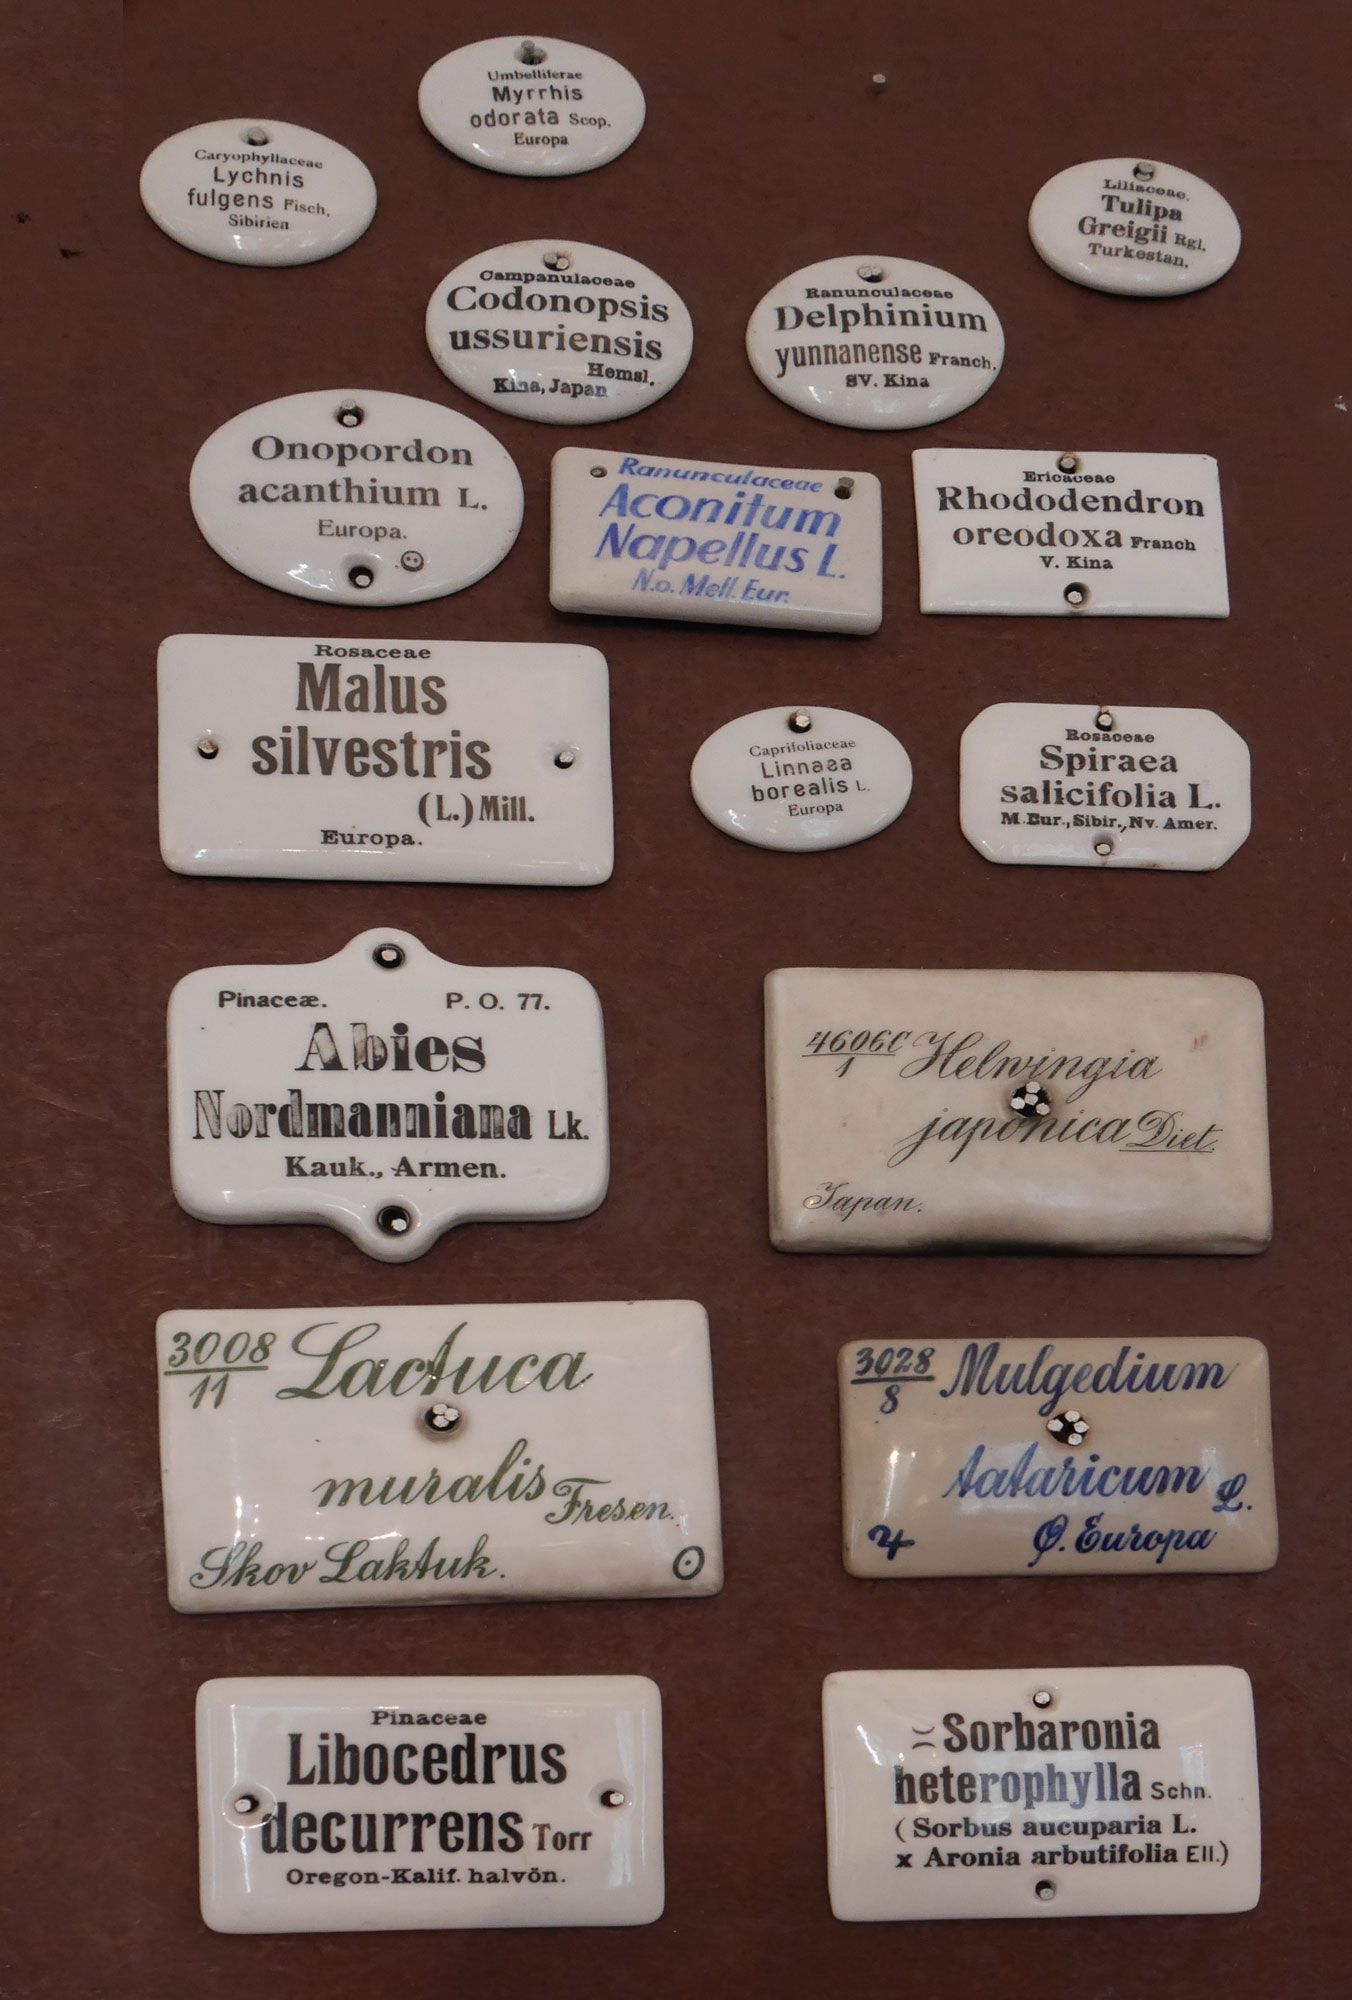 Umbelliferae
Myrrhis
odorata Scop.
Europa
Caryophyllaceae
Lychnis
fulgens Fisch.
Sibirien
Liliaceae.
Tulipa
Greigii Rgl.
Turkestan.
Campanulaceae
Codonopsis
ussuriensis
Hemsl.
Kina, Japan
Ranunculaceae
Delphinium
yunnanense Franch.
SV. Kina
Onopordon
acanthium L.
Europa.
Ranunculaceae
Aconitum
Napellus L.
N.o. Mell. Eur.
Ericaceae
Rhododendron
oreodoxa Franch
V. Kina
Rosaceae
Malus
silvestris
(L.) Mill.
Europa.
Caprifoliaceae
Linnaea
borealis L.
Europa
Rosaceae
Spiraea
salicifolia L.
M. Eur., Sibir., Nv. Amer.
Pinaceæ. P. O. 77.
Abies
Nordmanniana Lk.
Kauk., Armen.
4606C/1 Helwingia
japonica Diet.
Japan.
3008/11 Lactuca
muralis Fresen.
Skov Laktuk. ⊙
3028/8 Mulgedium
tataricum L.
♃ Ø. Europa
Pinaceae
Libocedrus
decurrens Torr
Oregon-Kalif. halvön.
Sorbaronia
heterophylla Schn.
(Sorbus aucuparia L.
x Aronia arbutifolia Ell.)